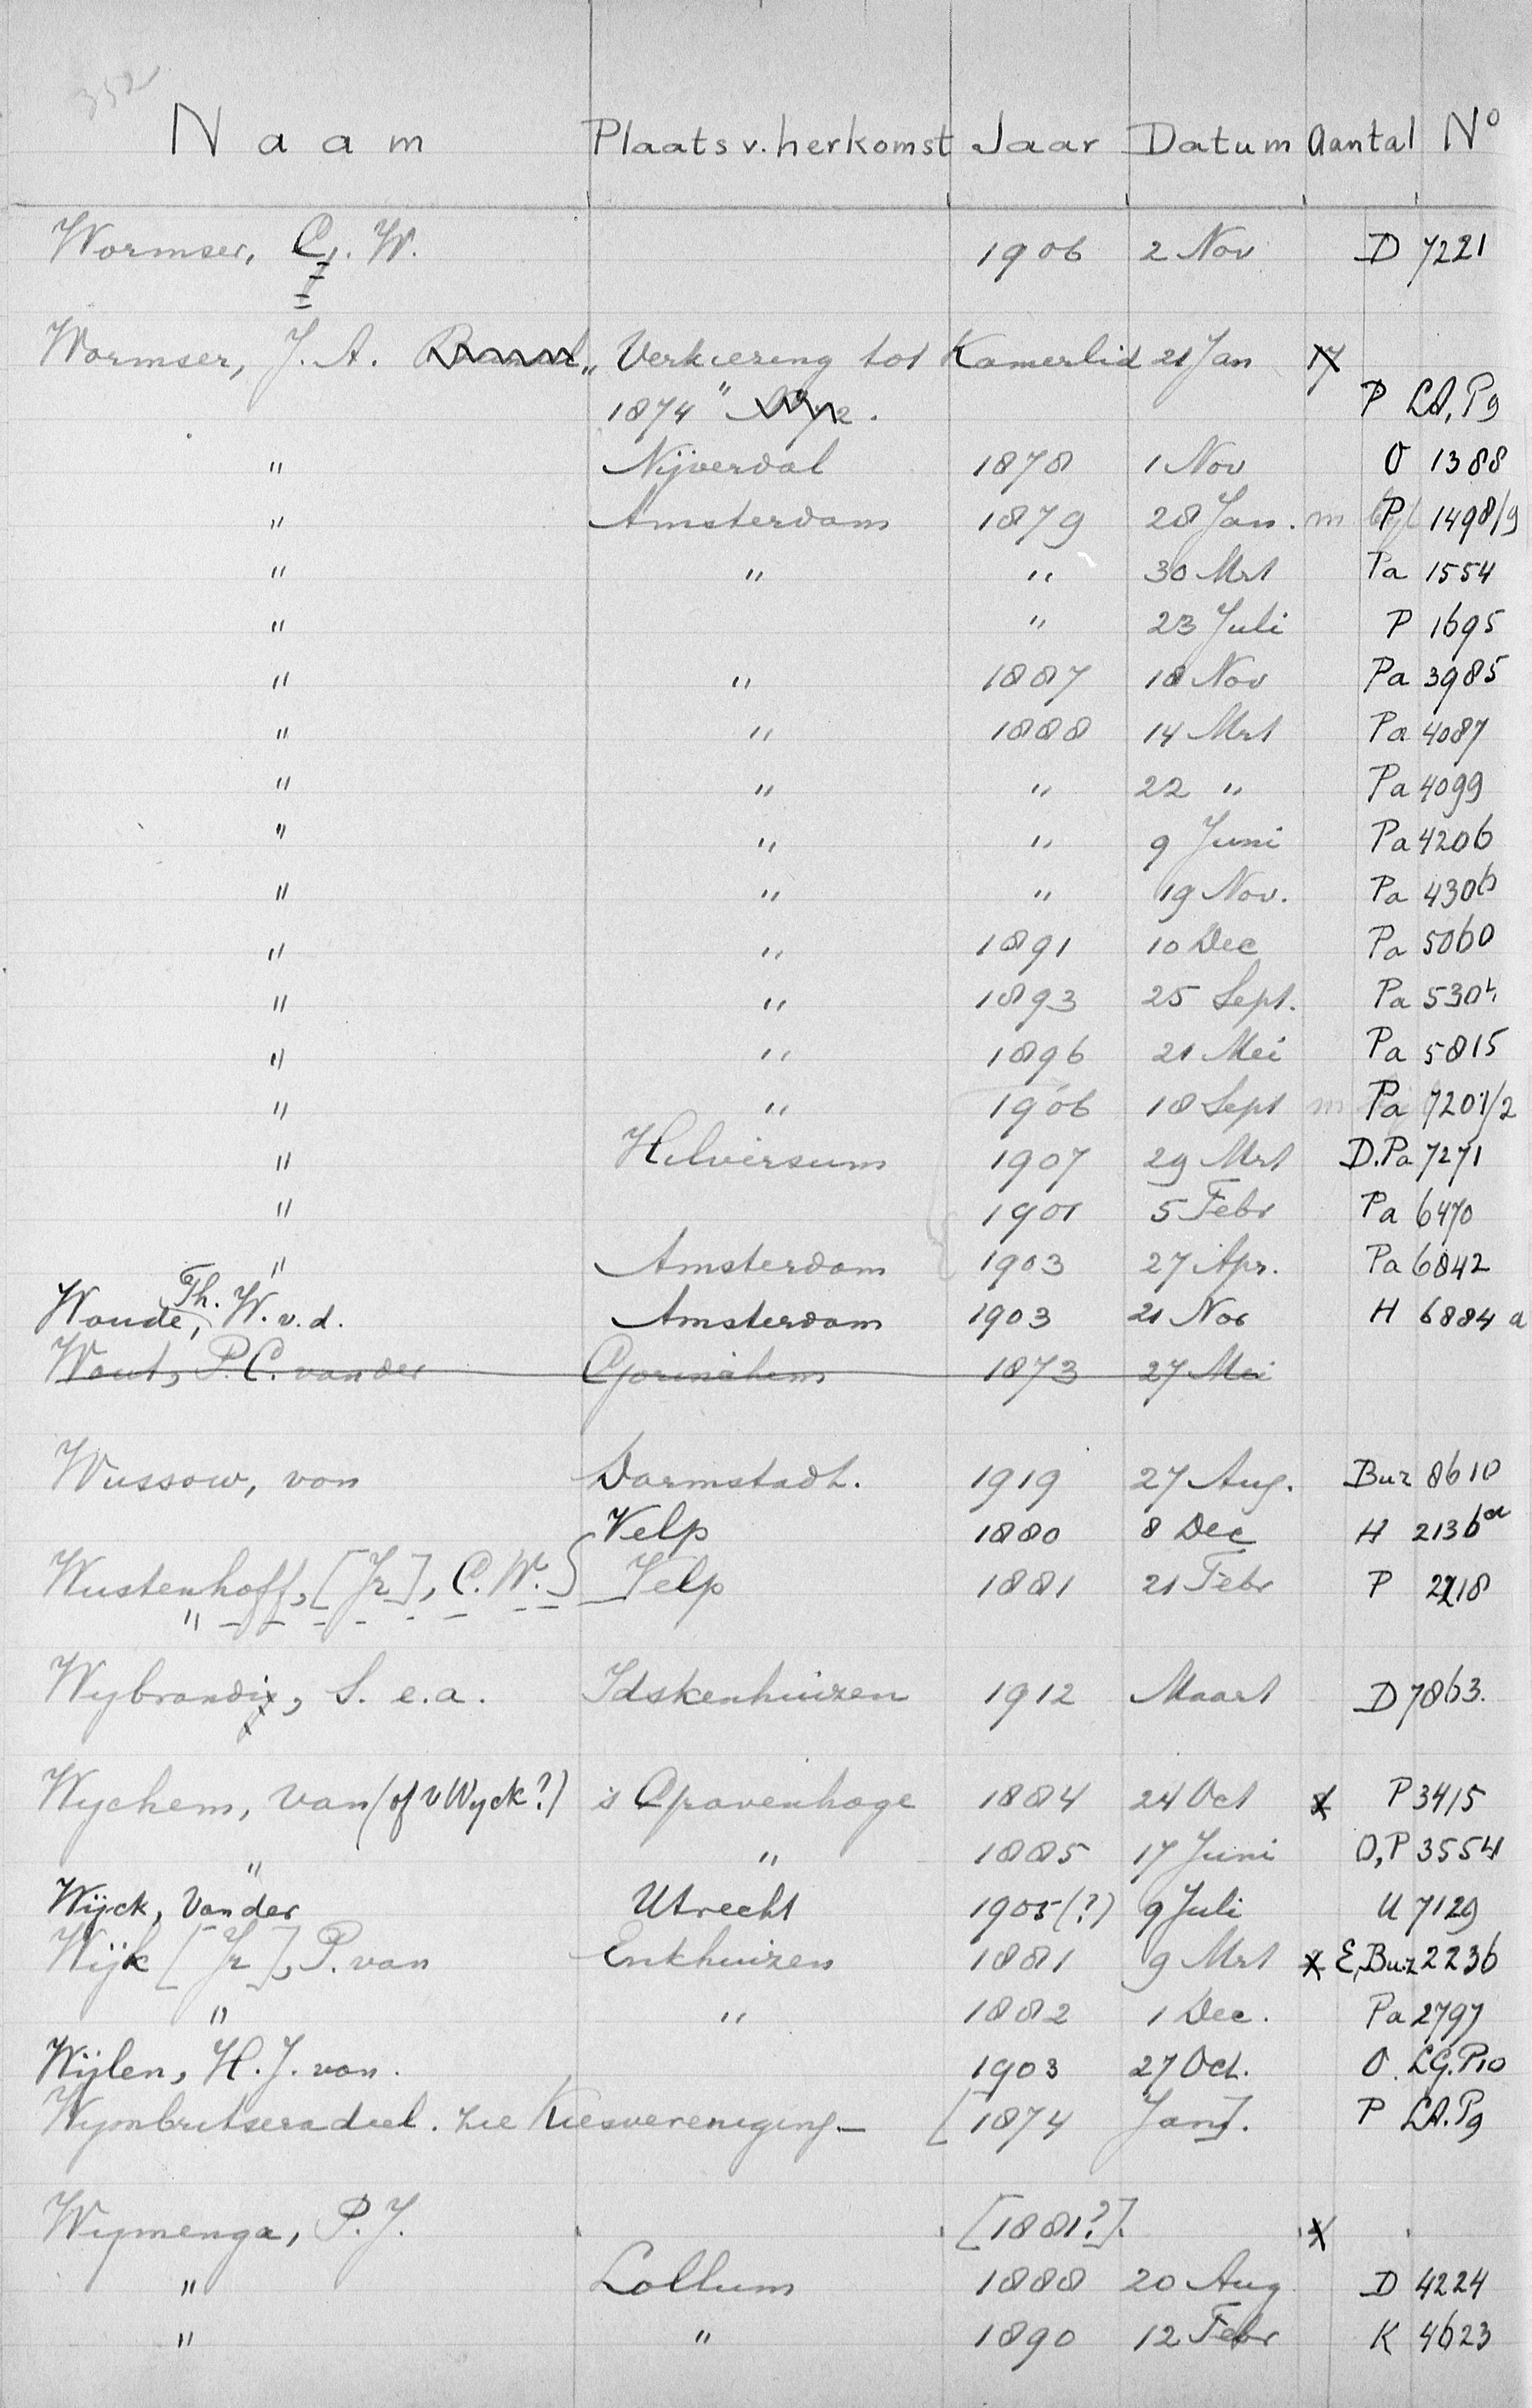 352
Naam Plaats v. herkomst Jaar Datum Aantal No
Wormser, C. W. 1906 2 Nov D 7221
Wormser, J. A. „Verkiezing tot Kamerlid 21 Jan
1874" P LA, P9
" Nijverdal 1878 1 Nov O 1388
" Amsterdam 1879 28 Jan. m P 1498/9
" " " 30 Mrt Pa 1554
" " 23 Juli P 1695
" " 1887 18 Nov Pa 3985
" " 1888 14 Mrt Pa 4087
" " " 22 " Pa 4099
" " " 9 Juni Pa 4206
" " " 19 Nov. Pa 4306
" " 1891 10 Dec Pa 5060
" " 1893 25 Sept. Pa 5304
" " 1896 21 Mei Pa 5815
" " 1906 18 Sept m Pa 7201/2
" Hilversum 1907 29 Mrt D.Pa 7271
" 1901 5 Febr Pa 6470
" Amsterdam 1903 27 Apr. Pa 6842
Woude, Th. W. v. d. Amsterdam 1903 21 Nov H 6884 a
Wout, P. C. van der Gorinchem 1873 27 Mei
Wussow, von Darmstadt. 1919 27 Aug. Buz 8610
Velp 1880 8 Dec H 2136a
Wustenhoff, [Jr], C. W. Velp 1881 21 Febr P 2218
"
Wybrandi, S. e.a. Idskenhuizen 1912 Maart D 7863.
Wychem, van (of v Wyck?) s Gravenhage 1884 24 Oct x P 3415
" " 1885 17 Juni O,P 3554
Wijck, van der Utrecht 1905 (?) 9 Juli U 7129
Wijk [Jr], P. van Enkhuizen 1881 9 Mrt x E,Buz 2236
" " 1882 1 Dec. Pa 2797
Wijlen, H. J. van. 1903 27 Oct. O. LG.P10
Wymbritseradeel. zie Kiesvereniging — [1874 Jan]. P LA.P9
Wymenga, P. J. [1881?]. x
" Lollum 1888 20 Aug D 4224
" " 1890 12 Febr K 4623